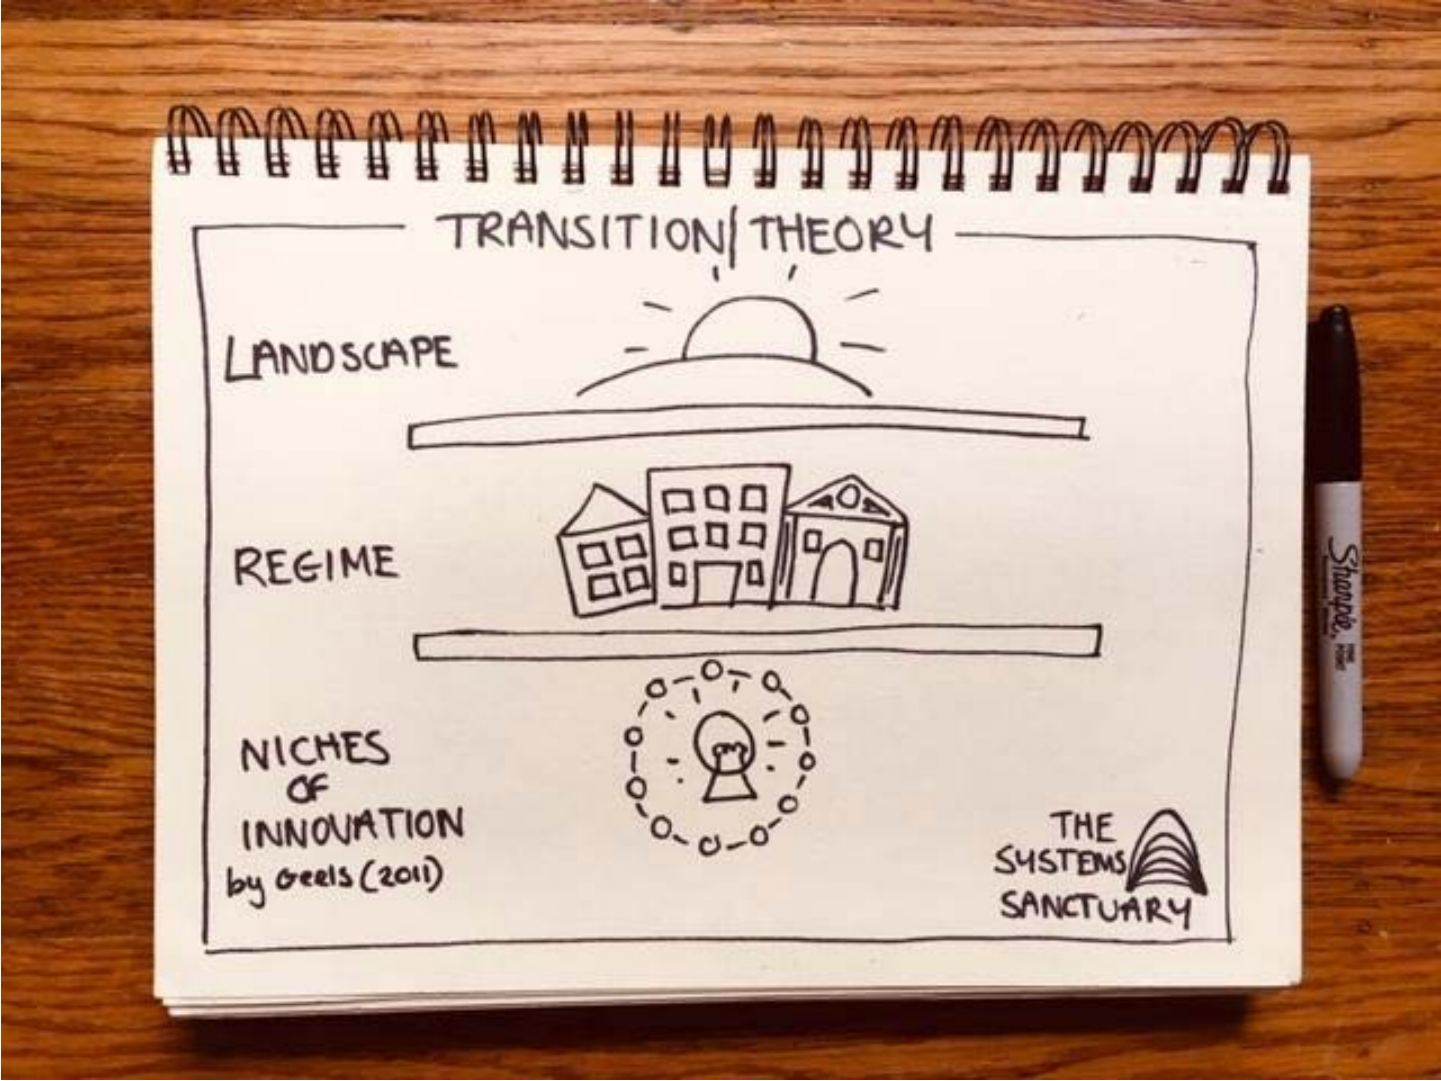 TRANSITION/THEORY
LANDSCAPE
REGIME
NICHES
OF
INNOVATION
by Geels (2011)
THE
SYSTEMS
SANCTUARY
Sharpie
FINE POINT